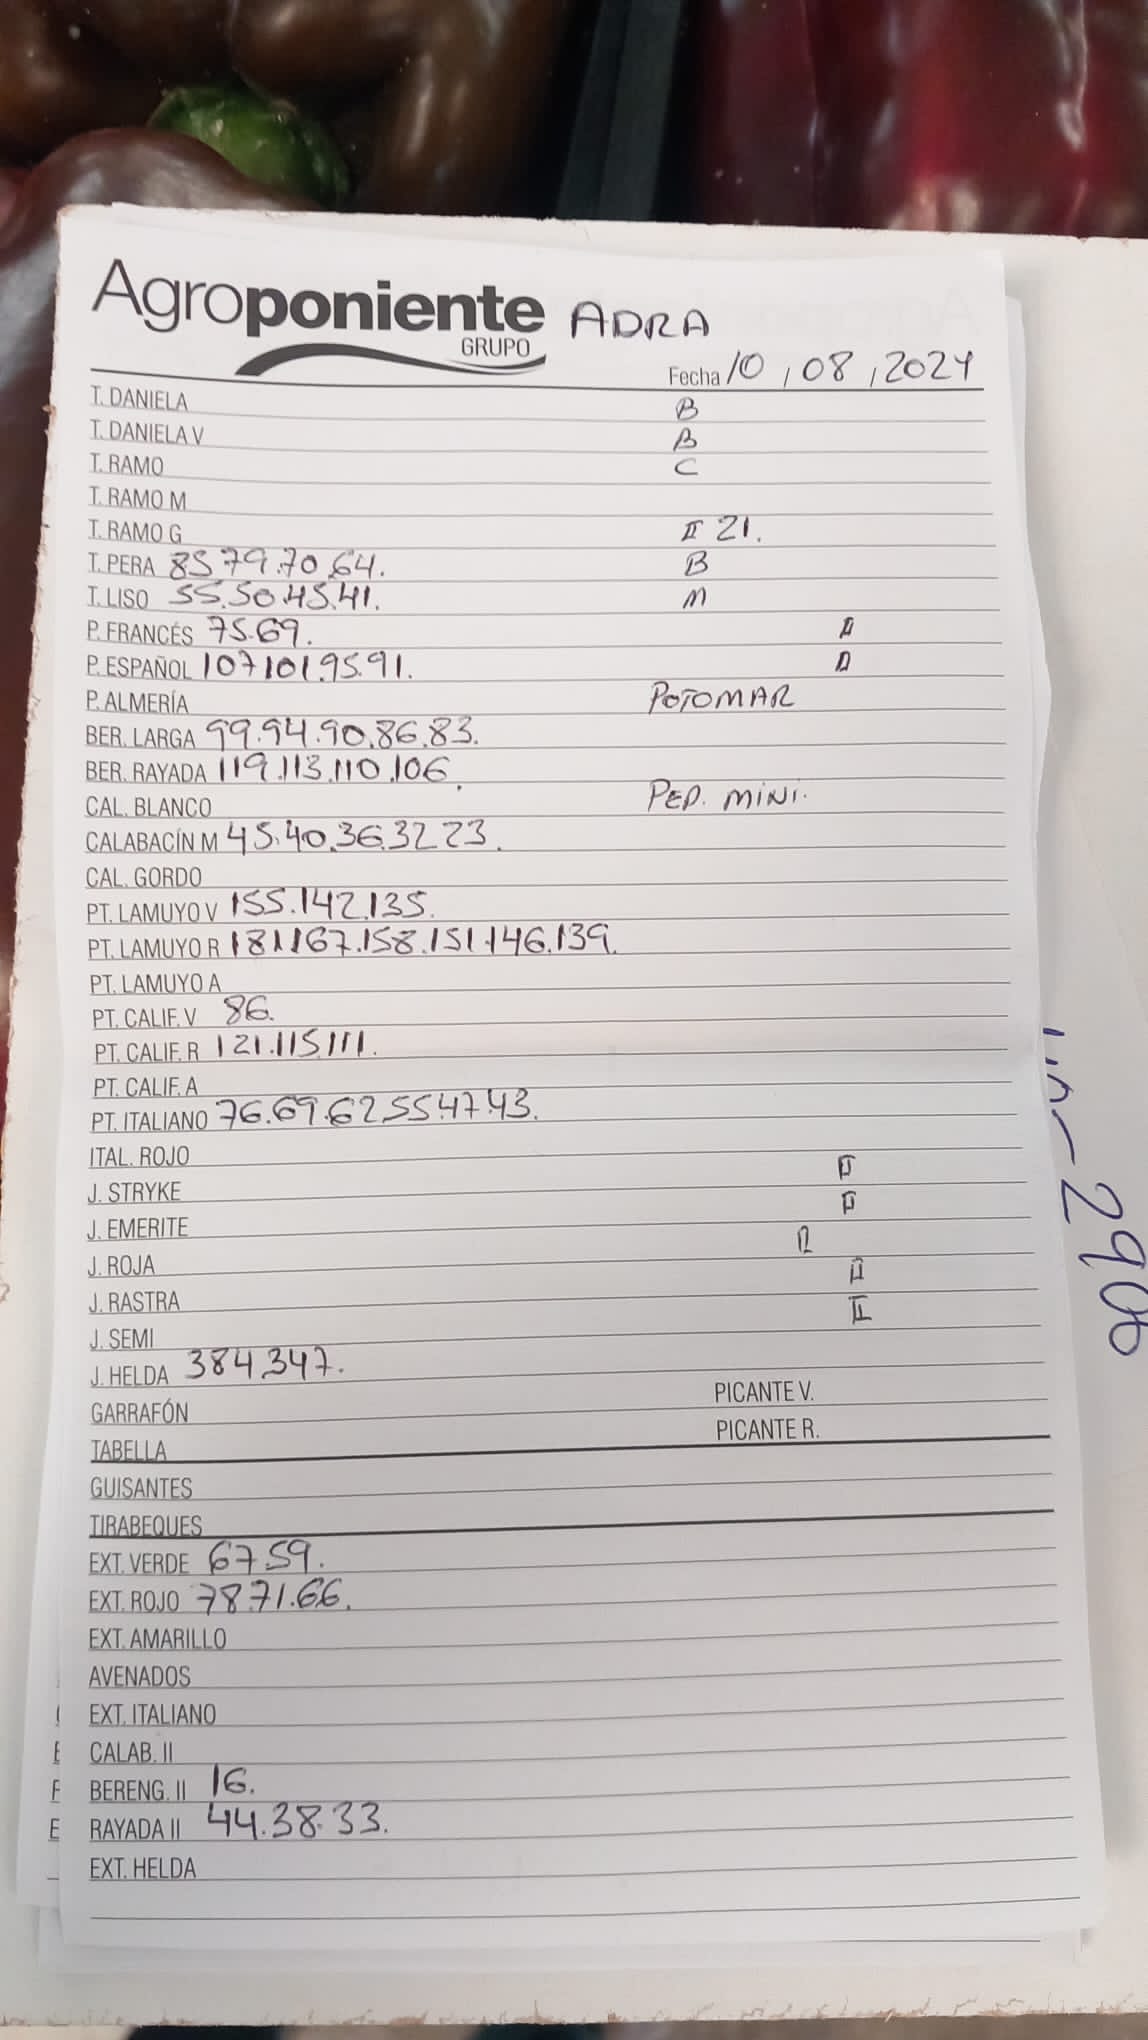 Agroponiente ADRA
GRUPO
Fecha 10, 08, 2024
T. DANIELA B
T. DANIELA V B
T. RAMO C
T. RAMO M
T. RAMO G II 21.
T. PERA 85.79.70.64. B
T. LISO 55.50.45.41. M
P. FRANCÉS 75.69. II
P. ESPAÑOL 107.101.95.91. II
P. ALMERÍA POTOMAR
BER. LARGA 99.94.90.86.83.
BER. RAYADA 119.113.110.106.
CAL. BLANCO PEP. MINI.
CALABACÍN M 45.40.36.32.23.
CAL. GORDO
PT. LAMUYO V 155.142.135.
PT. LAMUYO R 181.167.158.151.146.139.
PT. LAMUYO A
PT. CALIF. V 86.
PT. CALIF. R 121.115.111.
PT. CALIF. A
PT. ITALIANO 76.69.62.55.47.43.
ITAL. ROJO
J. STRYKE II
J. EMERITE II
J. ROJA R
J. RASTRA II
J. SEMI II
J. HELDA 384.347.
GARRAFÓN PICANTE V.
TABELLA PICANTE R.
GUISANTES
TIRABEQUES
EXT. VERDE 67.59.
EXT. ROJO 78.71.66.
EXT. AMARILLO
AVENADOS
EXT. ITALIANO
CALAB. II
BERENG. II 16.
RAYADA II 44.38.33.
EXT. HELDA